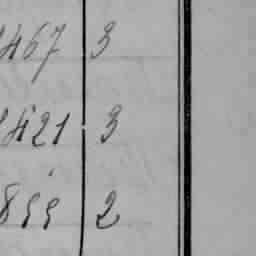 467 3
421 3
855 2